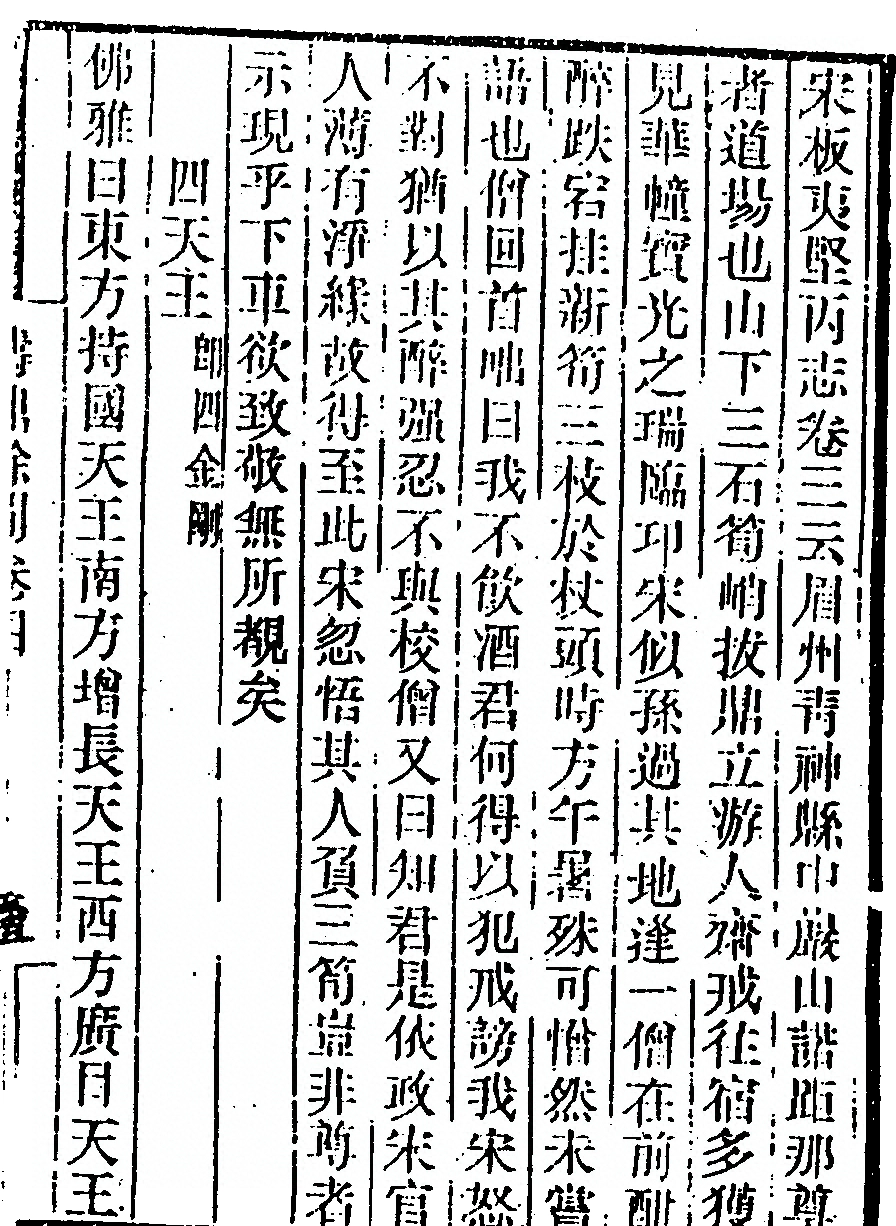 宋板夷堅丙志卷三云眉州青神縣中巖山諾距那尊
者道場也山下三石筍峭拔鼎立游人齋戒往宿多獲
見華幢寶光之瑞臨卭宋似孫過其地逢一僧在前酣
醉跌宕挂新筍三枝於杖頭時方午暑殊可憎然未嘗
語也僧回首咄曰我不飲酒君何得以犯戒謗我宋怒
不對猶以其醉强忍不與校僧又曰知君是依政宋官
人薄有淨緣故得至此宋忽悟其人頂三筍豈非尊者
示現乎下車欲致敬無所覩矣
四天王 即四金剛
佛雅曰東方持國天王南方增長天王西方廣目天王
餘 卷四